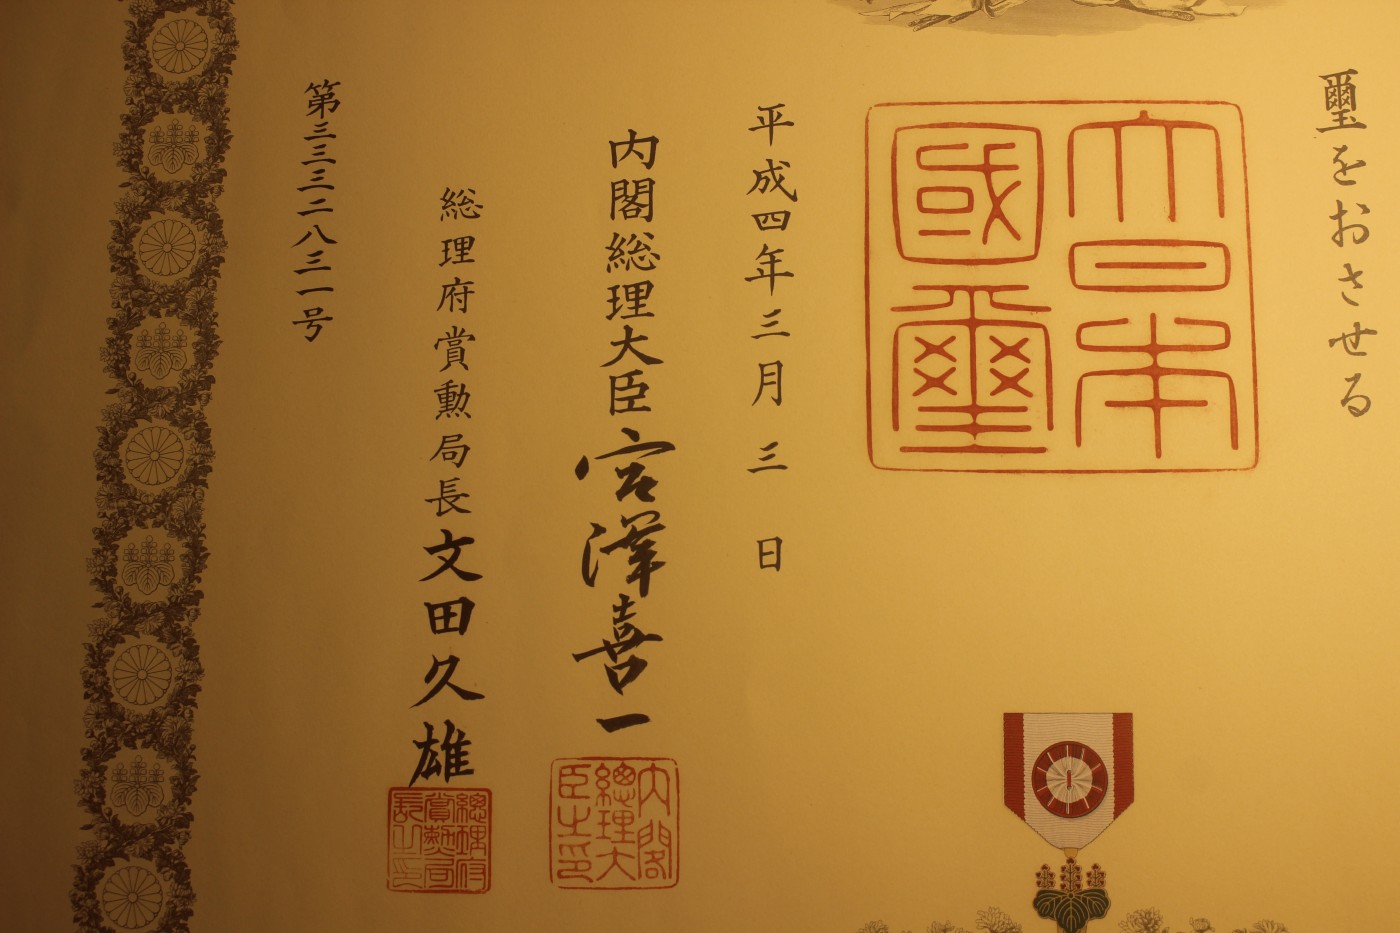 璽をおさせる
大日本
國璽
平成四年三月三日
内閣総理大臣 宮澤喜一
内閣
總理大
臣之印
総理府賞勲局長 文田久雄
總理府
賞勲局
長之印
第三三三二八三一号